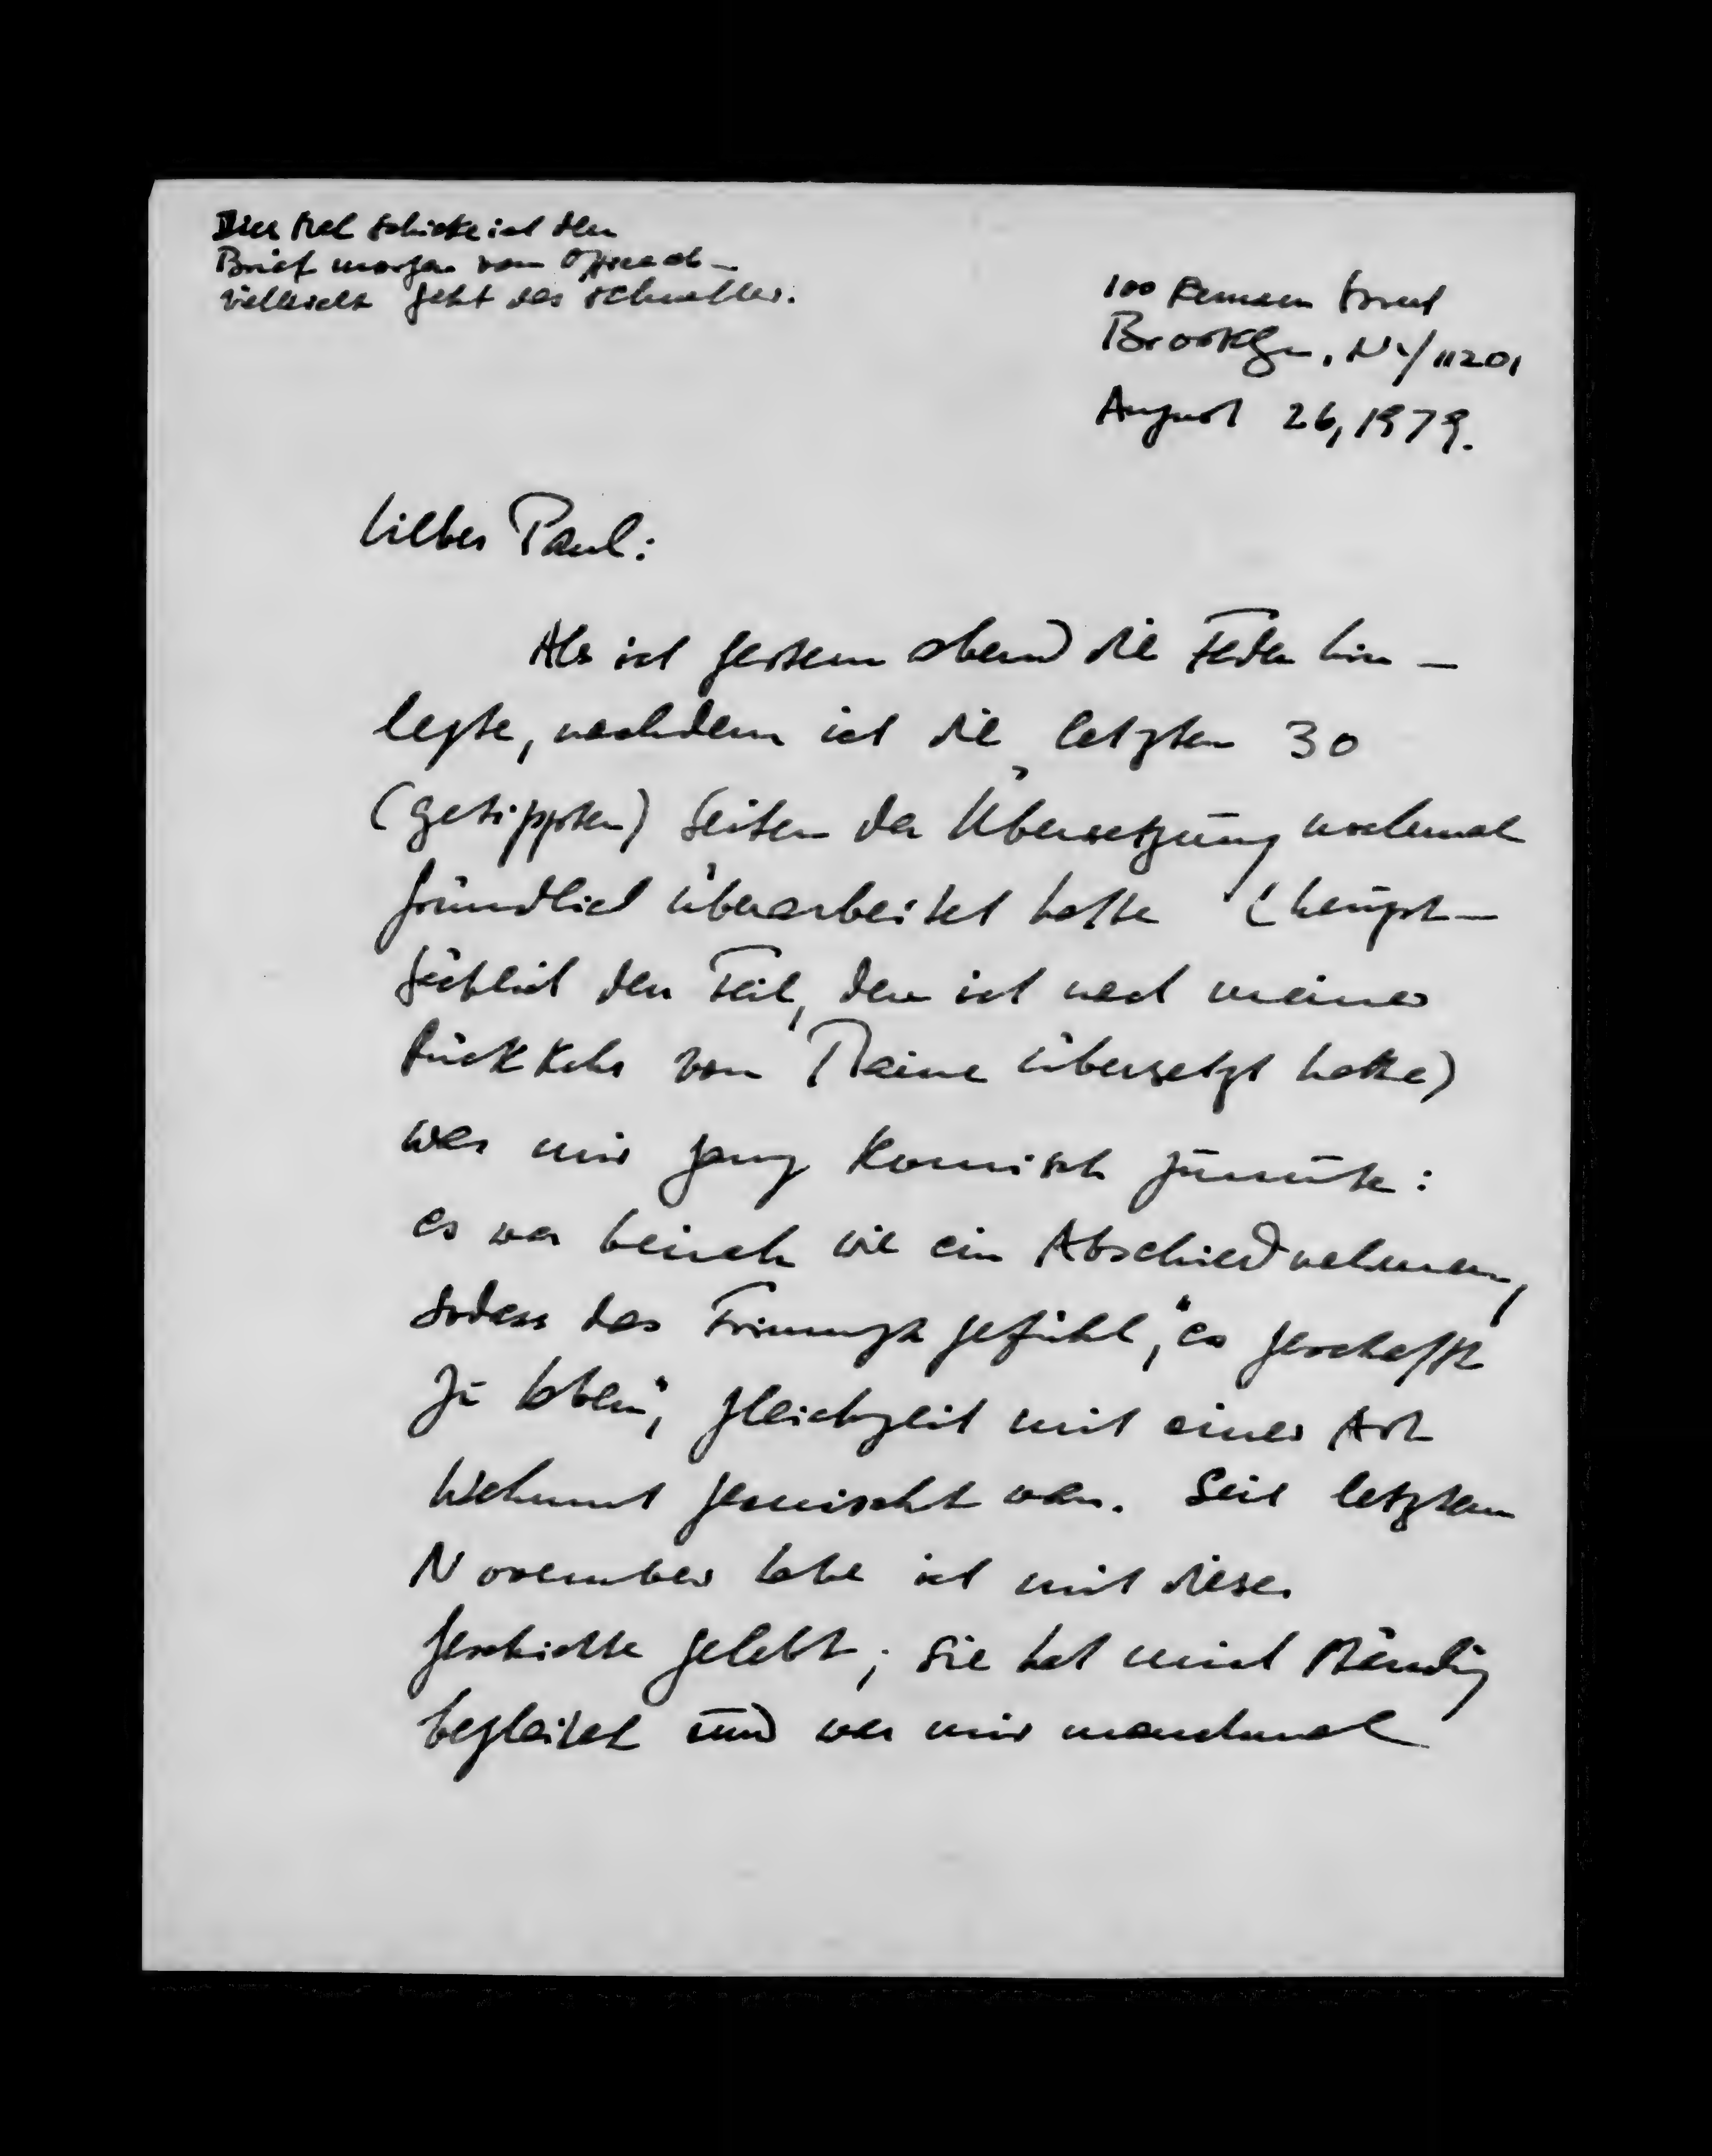 Dies Mal schicke ich den
Brief morgen vom Office ab –
vielleicht geht das schneller.
100 Remsen Street
Brooklyn, NY/11201
August 26, 1979.
Lieber Paul:
Als ich gestern abend die Feder hin –
legte, nachdem ich die letzten 30
(getippten) Seiten der Übersetzung nochmal
gründlich überarbeitet hatte (haupt –
sächlich den Teil, den ich nach meiner
Rückkehr von Maine übersetzt hatte)
war mir ganz komisch zumute:
es war beinah wie ein Abschiednehmen,
sodass das Triumphgefühl, "es geschafft
zu haben", gleichzeit mit einer Art
Wehmut gemischt war. Seit letztem
November habe ich mit dieser
Geschichte gelebt; sie hat mich ständig
begleitet und war mir manchmal